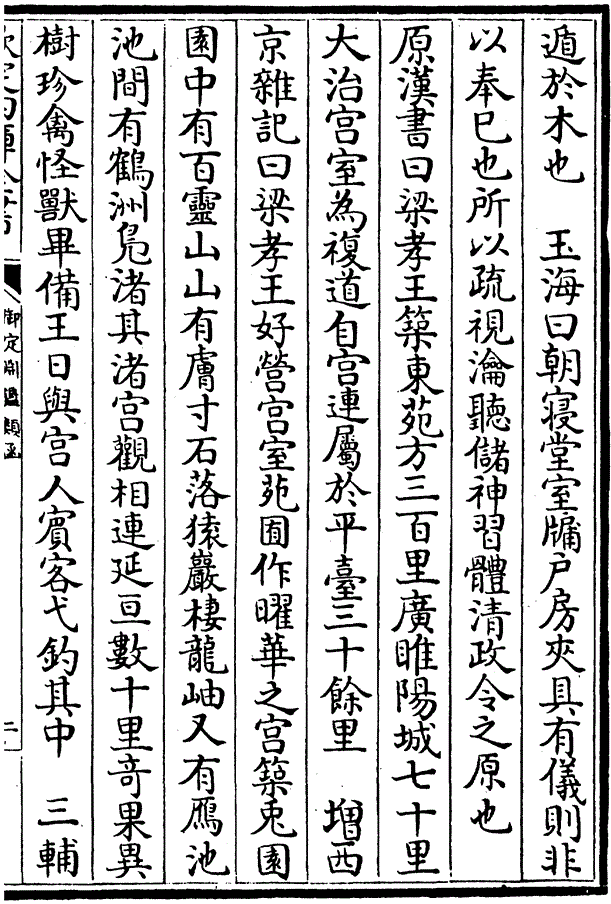 遁於木也　玉海曰朝寢堂室牖户房夾具有儀則非
以奉已也所以疏視瀹聽儲神習體清政令之原也
原漢書曰梁孝王築東苑方三百里廣睢陽城七十里
大治宫室為複道自宫連屬於平臺三十餘里　增西
京雜記曰梁孝王好營宫室苑囿作曜華之宫築兎園
園中有百靈山山有膚寸石落猿巖棲龍岫又有鴈池
池間有鶴洲凫渚其渚宫觀相連延亘數十里竒果異
樹珍禽怪獸畢備王日與宫人賓客弋釣其中　三輔
御定淵鑑類函